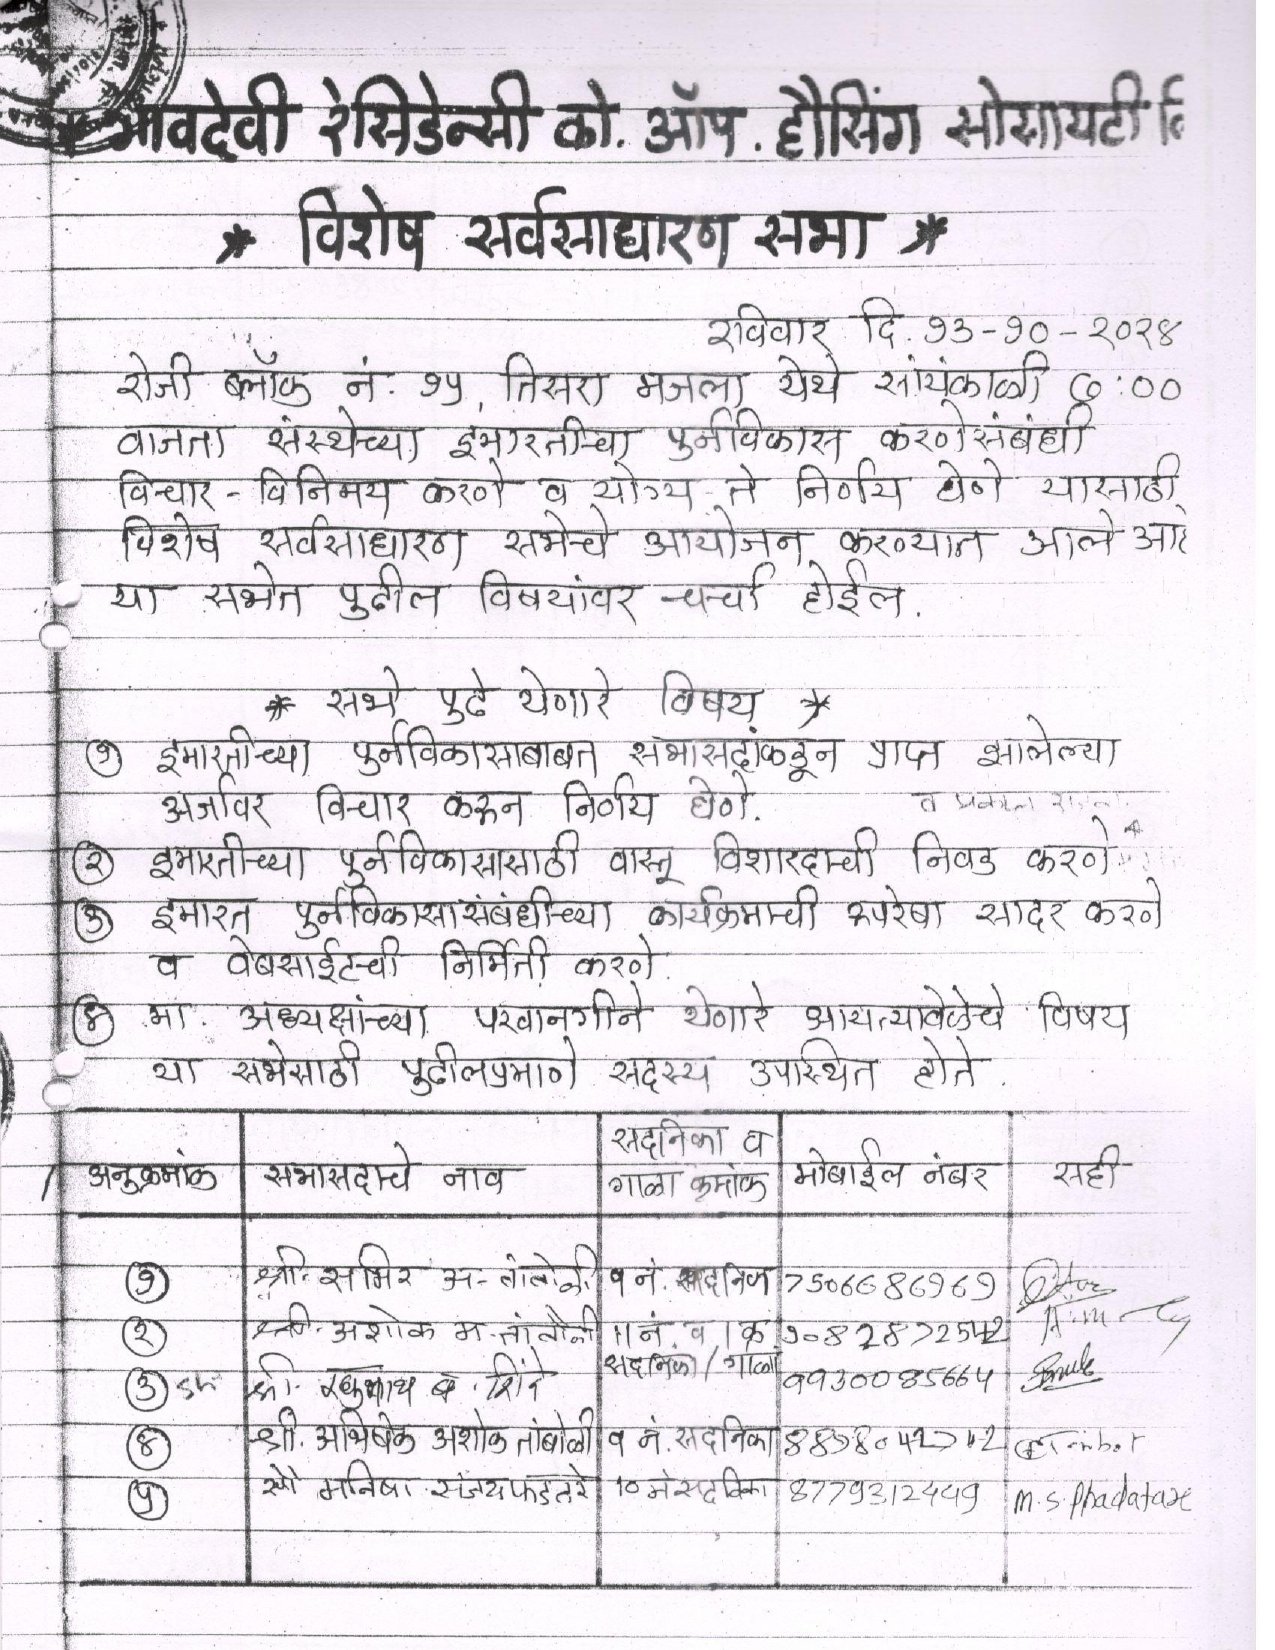 गावदेवी रेसिडेन्सी को. ऑप. हौसिंग सोसायटी लि
* विशेष सर्वसाधारण सभा *
रविवार दि. १३-१०-२०२४
रोजी ब्लॉक नं. १५, तिसरा मजला येथे सांयंकाळी ७:००
वाजता संस्थेच्या इमारतीचा पुर्नविकास करणेसंबंधी
विचार - विनिमय करणे व योग्य ते निर्णय घेणे यासाठी
विशेष सर्वसाधारण सभेचे आयोजन करण्यात आले आहे
या सभेत पुढील विषयांवर चर्चा होईल.
* सभे पुढे येणारे विषय *
① इमारतीच्या पुर्नविकासाबाबत सभासदांकडून प्राप्त झालेल्या
अर्जावर विचार करून निर्णय घेणे.
② इमारतीच्या पुर्नविकासासाठी वास्तू विशारदाची निवड करणे
③ इमारत पुर्नविकासासंबंधीच्या कार्यक्रमाची रूपरेषा सादर करणे
व वेबसाईटची निर्मिती करणे.
④ मा. अध्यक्षांच्या परवानगीने येणारे आयत्यावेळेचे विषय
या सभेसाठी पुढीलप्रमाणे सदस्य उपस्थित होते.
अनुक्रमांक सभासदाचे नाव सदनिका व गाळा क्रमांक मोबाईल नंबर सही
① श्री. समिर अ. तांबोळी व नं. सदनिका 7506686969
② श्री. अशोक म. तांबोळी 11 नं. व 1 क्र सदनिका / गाळा 9082872542
③ श्री. रघुनाथ ब. शिंदे 9930085664
④ श्री. अभिषेक अशोक तांबोळी व नं. सदनिका
⑤ सौ मनिषा संजय फडतरे 10 नं सदनिका 8779312449 M.S. Phadatare